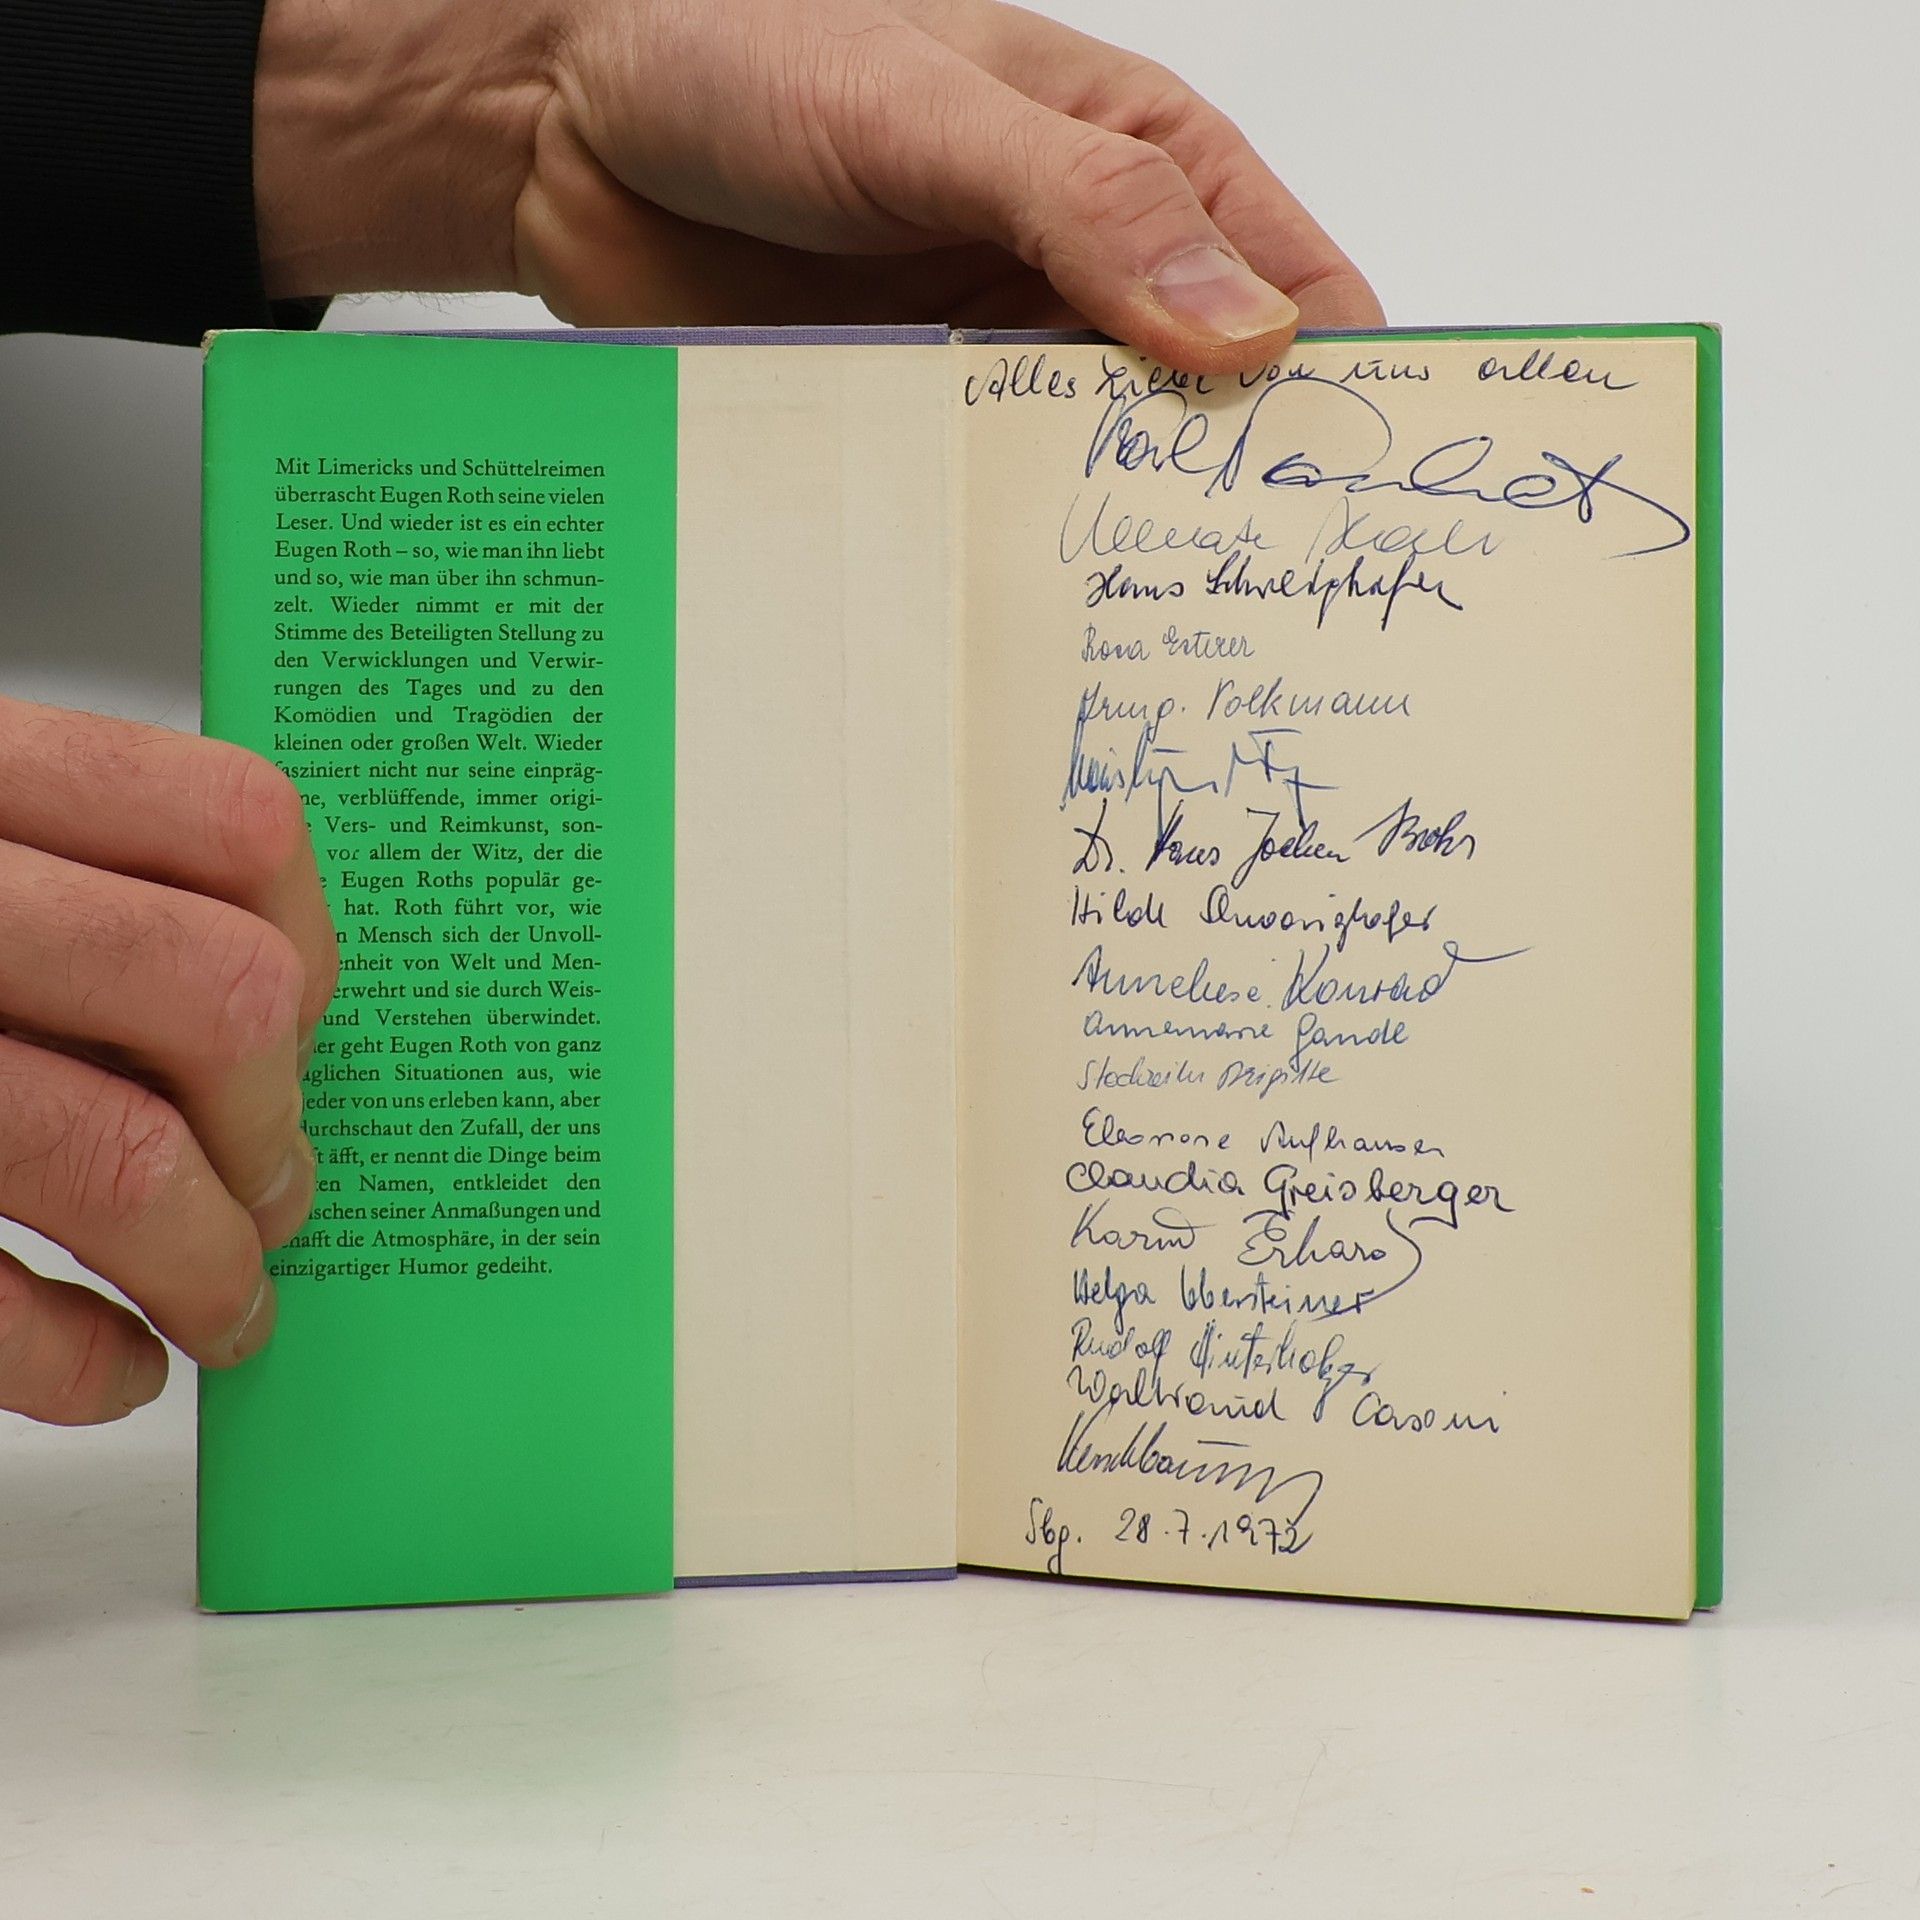 Mit Limericks und Schüttelreimen
überrascht Eugen Roth seine vielen
Leser. Und wieder ist es ein echter
Eugen Roth – so, wie man ihn liebt
und so, wie man über ihn schmun-
zelt. Wieder nimmt er mit der
Stimme des Beteiligten Stellung zu
den Verwicklungen und Verwir-
rungen des Tages und zu den
Komödien und Tragödien der
kleinen oder großen Welt. Wieder
fasziniert nicht nur seine einpräg-
verblüffende, immer origi-
Vers- und Reimkunst, son-
vor allem der Witz, der die
Eugen Roths populär ge-
hat. Roth führt vor, wie
Mensch sich der Unvoll-
von Welt und Men-
und sie durch Weis-
und Verstehen überwindet.
geht Eugen Roth von ganz
Situationen aus, wie
jeder von uns erleben kann, aber
durchschaut den Zufall, der uns
äfft, er nennt die Dinge beim
Namen, entkleidet den
seiner Anmaßungen und
die Atmosphäre, in der sein
einzigartiger Humor gedeiht.
Alles Liebe von uns allen
Hans
Rosa Esterer
Irmg. Volkmann
Dr. Hans Jochen
Hilde
Anneliese Konrad
Annemarie Gandl
Brigitte
Eleonore Aufhauser
Claudia Greisberger
Karin Erhard
Helga Ebersteiner
Rudolf Hinterholzer
Waltraud Casoni
Sbg. 28.7.1972